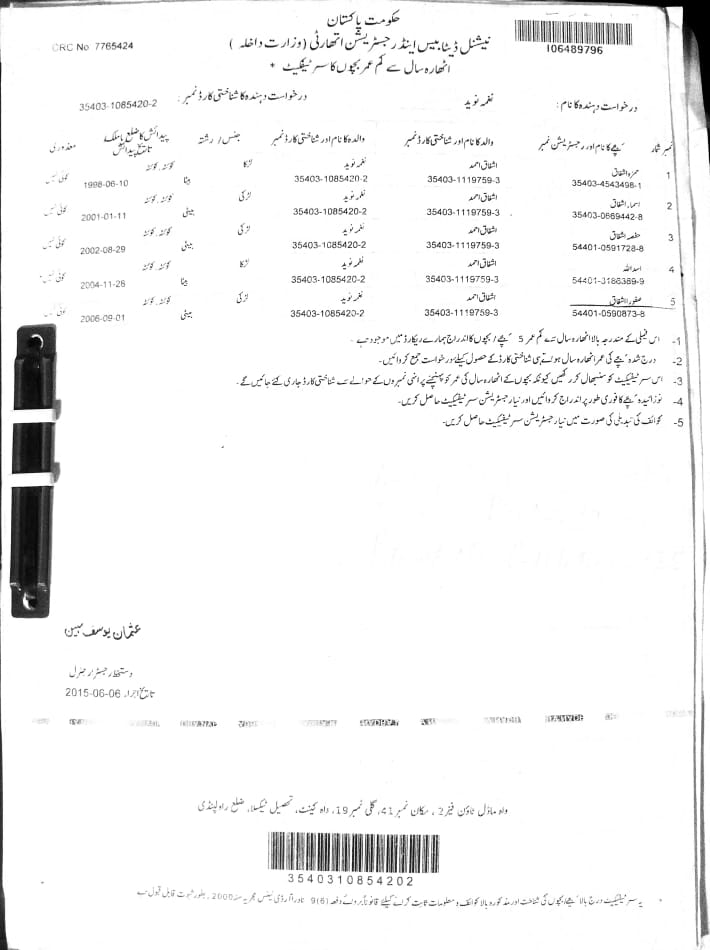 حکومت پاکستان
نیشنل ڈیٹا بیس اینڈ رجسٹریشن اتھارٹی (وزارت داخلہ)
CRC No 7765424
I06489796
اٹھارہ سال سے کم عمر بچوں کا سرٹیفکیٹ *
درخواست دہندہ کا نام: نغمہ نوید درخواست دہندہ کا شناختی کارڈ نمبر: 35403-1085420-2
نمبر شمار بچے کا نام اور رجسٹریشن نمبر والد کا نام اور شناختی کارڈ نمبر والدہ کا نام اور شناختی کارڈ نمبر جنس / رشتہ پیدائش کا ضلع یا ملک معذوری
تاریخ پیدائش
1 حمزہ اشفاق اشفاق احمد نغمہ نوید لڑکا کوئٹہ، کوئٹہ
35403-4543498-1 35403-1119759-3 35403-1085420-2 بیٹا 1998-06-10 کوئی نہیں
2 اسماء اشفاق اشفاق احمد نغمہ نوید لڑکی کوئٹہ، کوئٹہ
35403-0869442-8 35403-1119759-3 35403-1085420-2 بیٹی 2001-01-11 کوئی نہیں
3 حفصہ اشفاق اشفاق احمد نغمہ نوید لڑکی کوئٹہ، کوئٹہ
54401-0591728-8 35403-1119759-3 35403-1085420-2 بیٹی 2002-08-29 کوئی نہیں
4 اسد اللہ اشفاق احمد نغمہ نوید لڑکا کوئٹہ، کوئٹہ
54401-3186389-9 35403-1119759-3 35403-1085420-2 بیٹا 2004-11-26 کوئی نہیں
5 صفورا اشفاق اشفاق احمد نغمہ نوید لڑکی کوئٹہ، کوئٹہ
54401-0590873-8 35403-1119759-3 35403-1085420-2 بیٹی 2006-09-01 کوئی نہیں
1- اس فیملی کے مندرجہ بالا اٹھارہ سال سے کم عمر 5 بچے / بچوں کا اندراج ہمارے ریکارڈ میں موجود ہے۔
2- درج شدہ بچے کی عمر اٹھارہ سال ہوتے ہی شناختی کارڈ کے حصول کیلئے درخواست جمع کروائیں۔
3- اس سرٹیفکیٹ کو سنبھال کر رکھیں کیونکہ بچوں کے اٹھارہ سال کی عمر کو پہنچنے پر انہی نمبروں کے حوالے سے شناختی کارڈ جاری کئے جائیں گے۔
4- نوزائیدہ بچے کا فوری طور پر اندراج کروائیں اور نیا رجسٹریشن سرٹیفکیٹ حاصل کریں۔
5- کوائف کی تبدیلی کی صورت میں نیا رجسٹریشن سرٹیفکیٹ حاصل کریں۔
عثمان یوسف مبین
دستخط رجسٹرار جنرل
تاریخ اجراء 2015-06-06
واہ ماڈل ٹاؤن فیز 2، مکان نمبر 41، گلی نمبر 19، واہ کینٹ، تحصیل ٹیکسلا، ضلع راولپنڈی
3540310854202
* یہ سرٹیفکیٹ درج بالا بچے / بچوں کی شناخت اور مذکورہ بالا کوائف و معلومات ثابت کرانے کیلئے قانوناً بروئے دفعہ 9(6) نادرا آرڈی نینس مجریہ سنہ 2000، بطور ثبوت قابل قبول ہے